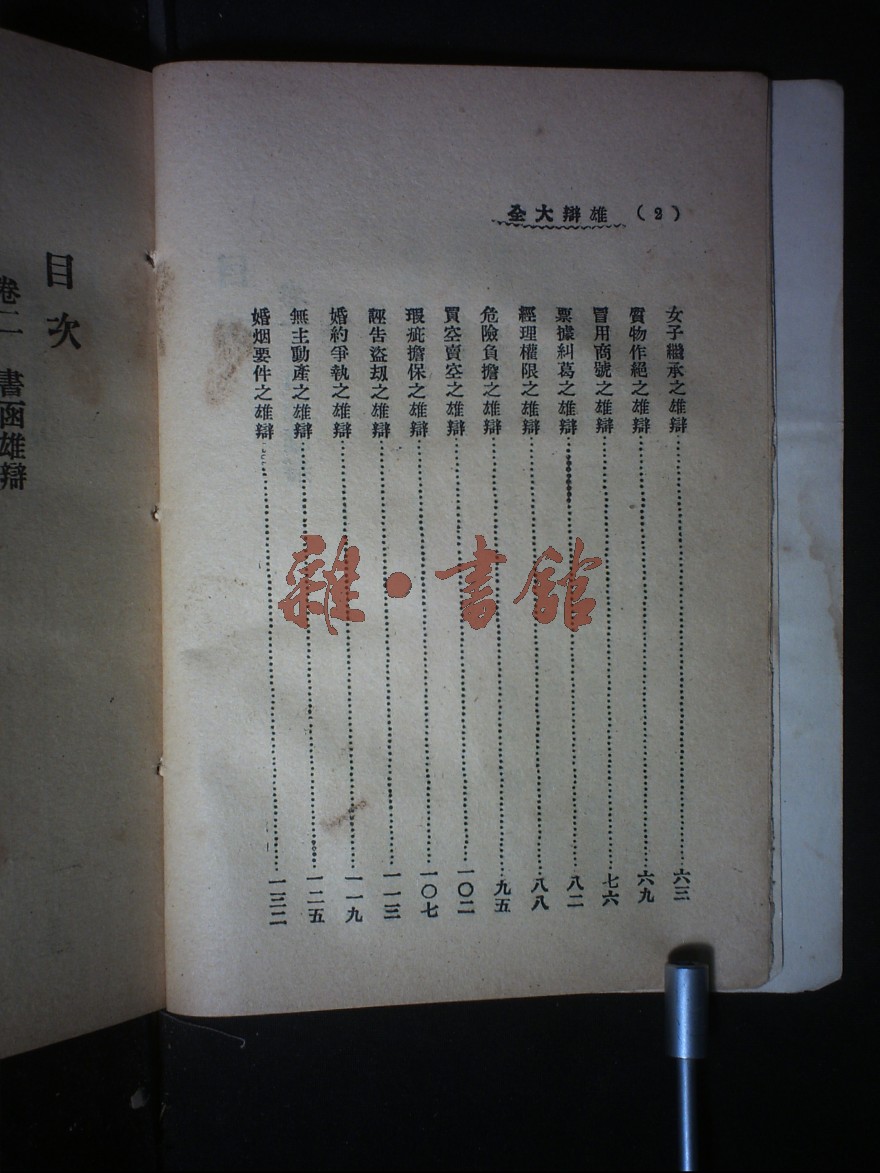 全大辯雄 (2)
女子繼承之雄辯……六三
質物作絕之雄辯……六九
冒用商號之雄辯……七六
票據糾葛之雄辯……八二
經理權限之雄辯……八八
危險負擔之雄辯……九五
買空賣空之雄辯……一〇二
瑕疵擔保之雄辯……一〇七
誣告盜劫之雄辯……一一三
婚約爭執之雄辯……一一九
無主動產之雄辯……一二五
婚烟要件之雄辯……一三二
目次
卷二 書函雄辯
雜·書館